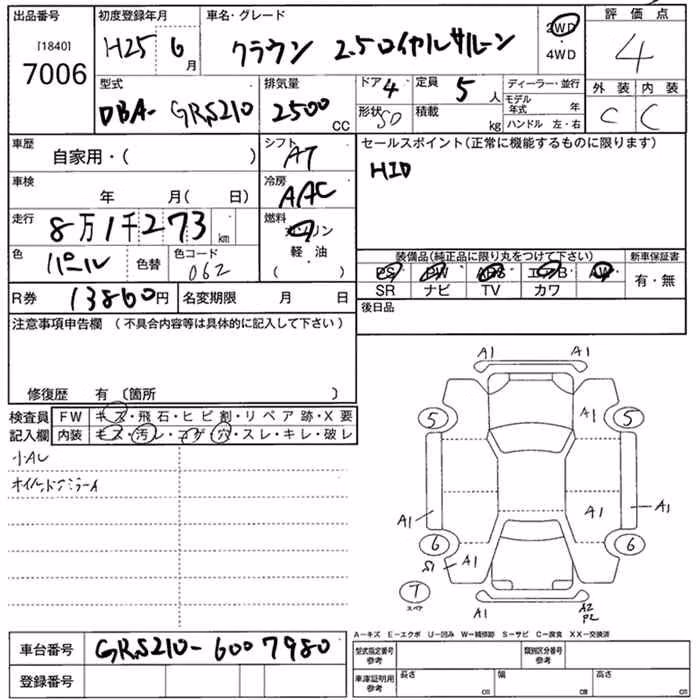 出品番号
[1840]
7006
初度登録年月
H25 6月
車名・グレード
クラウン 2.5ロイヤルサルーン
2WD
・
4WD
評価点
4
外装 内装
C C
型式
DBA-GRS210
排気量
2500 CC
ドア 4
形状 SD
定員 5 人
積載 kg
ディーラー・並行
モデル年式 年
ハンドル 左・右
車歴
自家用・( )
シフト
AT
車検
年 月( 日)
冷房
AAC
走行
8万1千273 km
燃料
ガソリン
軽・油
( )
色
パール
色替
色コード
062
R券 13860円
名変期限 月 日
セールスポイント(正常に機能するものに限ります)
HID
装備品(純正品に限り丸をつけて下さい)
PS PW ABS エアB AW
SR ナビ TV カワ
新車保証書
有・無
後日品
注意事項申告欄 (不具合内容等は具体的に記入して下さい)
修復歴 有 〔箇所 〕
検査員記入欄
FW キズ・飛石・ヒビ割・リペア跡・X要
内装 キズ・汚レ・コゲ・穴・スレ・キレ・破レ
小AU
A1 A1
5 A1 5
A1 A1 A1
6 A1 6
S1
7
スペア
A1 A2
P2
A-キズ E-エクボ U-凹み W-補修跡 S-サビ C-腐食 XX-交換済
車台番号 GRS210-6007980
登録番号
型式指定番号
参考
類別区分番号
参考
車庫証明用
参考
長さ cm 幅 cm 高さ cm